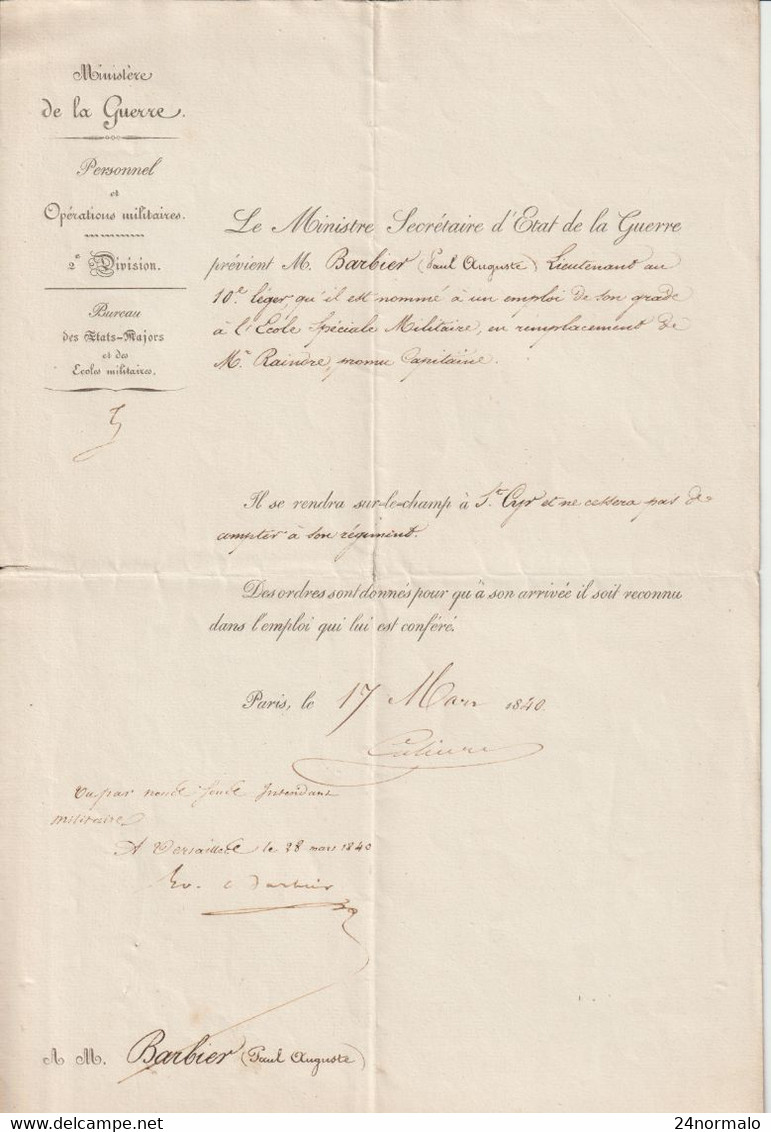 Ministère
de la Guerre.
Personnel
et
Opérations militaires.
2e Division.
Bureau
des Etats-Majors
et des
Ecoles militaires.
Le Ministre Secrétaire d'Etat de la Guerre
prévient M. Barbier (Paul Auguste) Lieutenant au
10e léger, qu'il est nommé à un emploi de son grade
à l'Ecole Spéciale Militaire, en remplacement de
Mr Raindre, promu Capitaine.
Il se rendra sur-le-champ à St Cyr et ne cessera pas de
compter à son régiment.
Des ordres sont donnés pour qu'à son arrivée il soit reconnu
dans l'emploi qui lui est conféré.
Paris, le 17 Mars 1840.
Vu par nous Intendant
militaire
A Versailles le 28 mars 1840
A M. Barbier (Paul Auguste)
24normalo